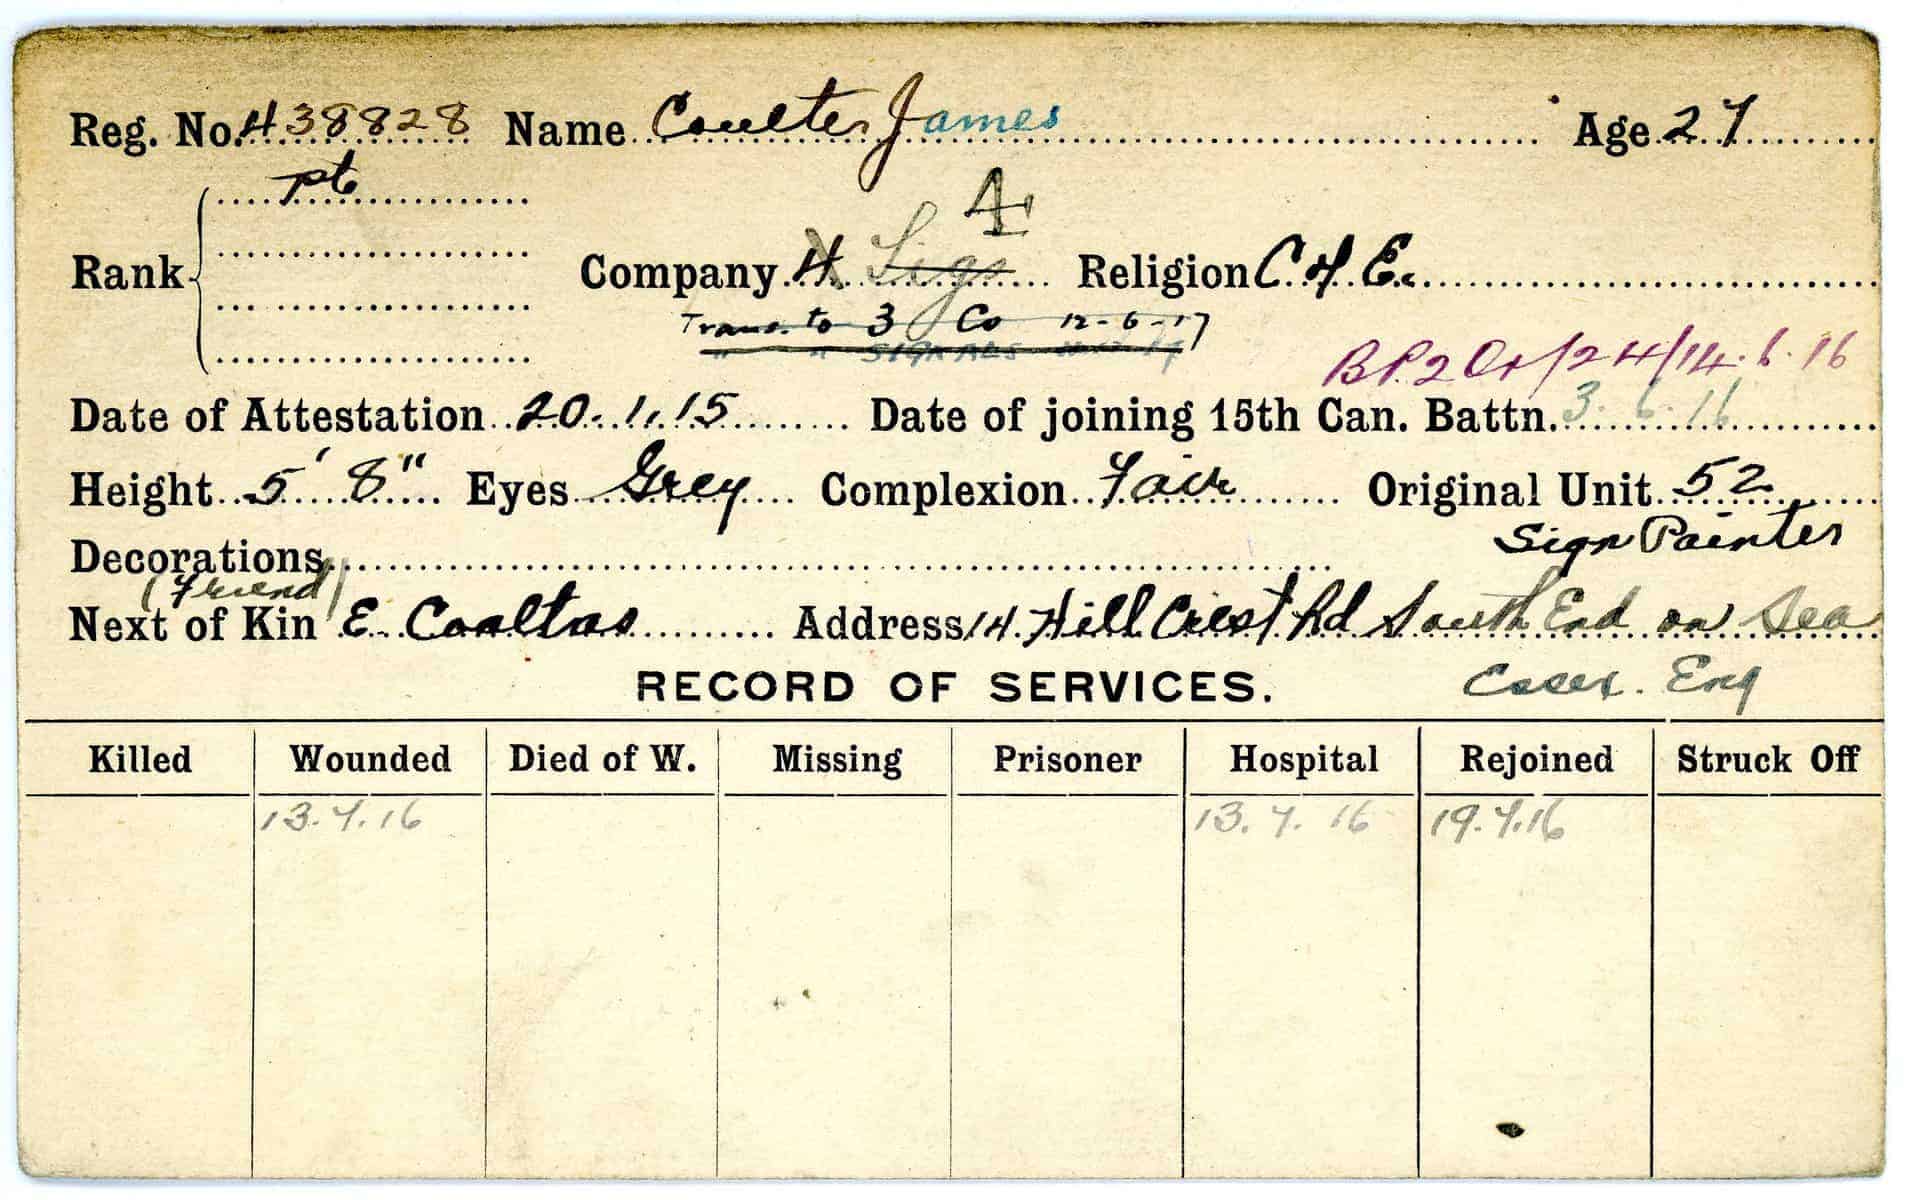 Reg. No. 438828 Name Coulter James Age 27
Pte
4
Rank Company 4 Sigs Religion C of E.
Trans. to 3 Co 12-6-17
" " SIGNALS
B.P.2 Or/24/14.6.16
Date of Attestation 20.1.15 Date of joining 15th Can. Battn. 3.6.16
Height 5' 8" Eyes Grey Complexion Fair Original Unit 52
Sign Painter
Decorations
(Friend)
Next of Kin E. Coaltas Address 14 Hill Crest Rd South End on Sea
Essex. Eng
RECORD OF SERVICES.
Killed Wounded Died of W. Missing Prisoner Hospital Rejoined Struck Off
13.7.16 13.7.16 19.7.16